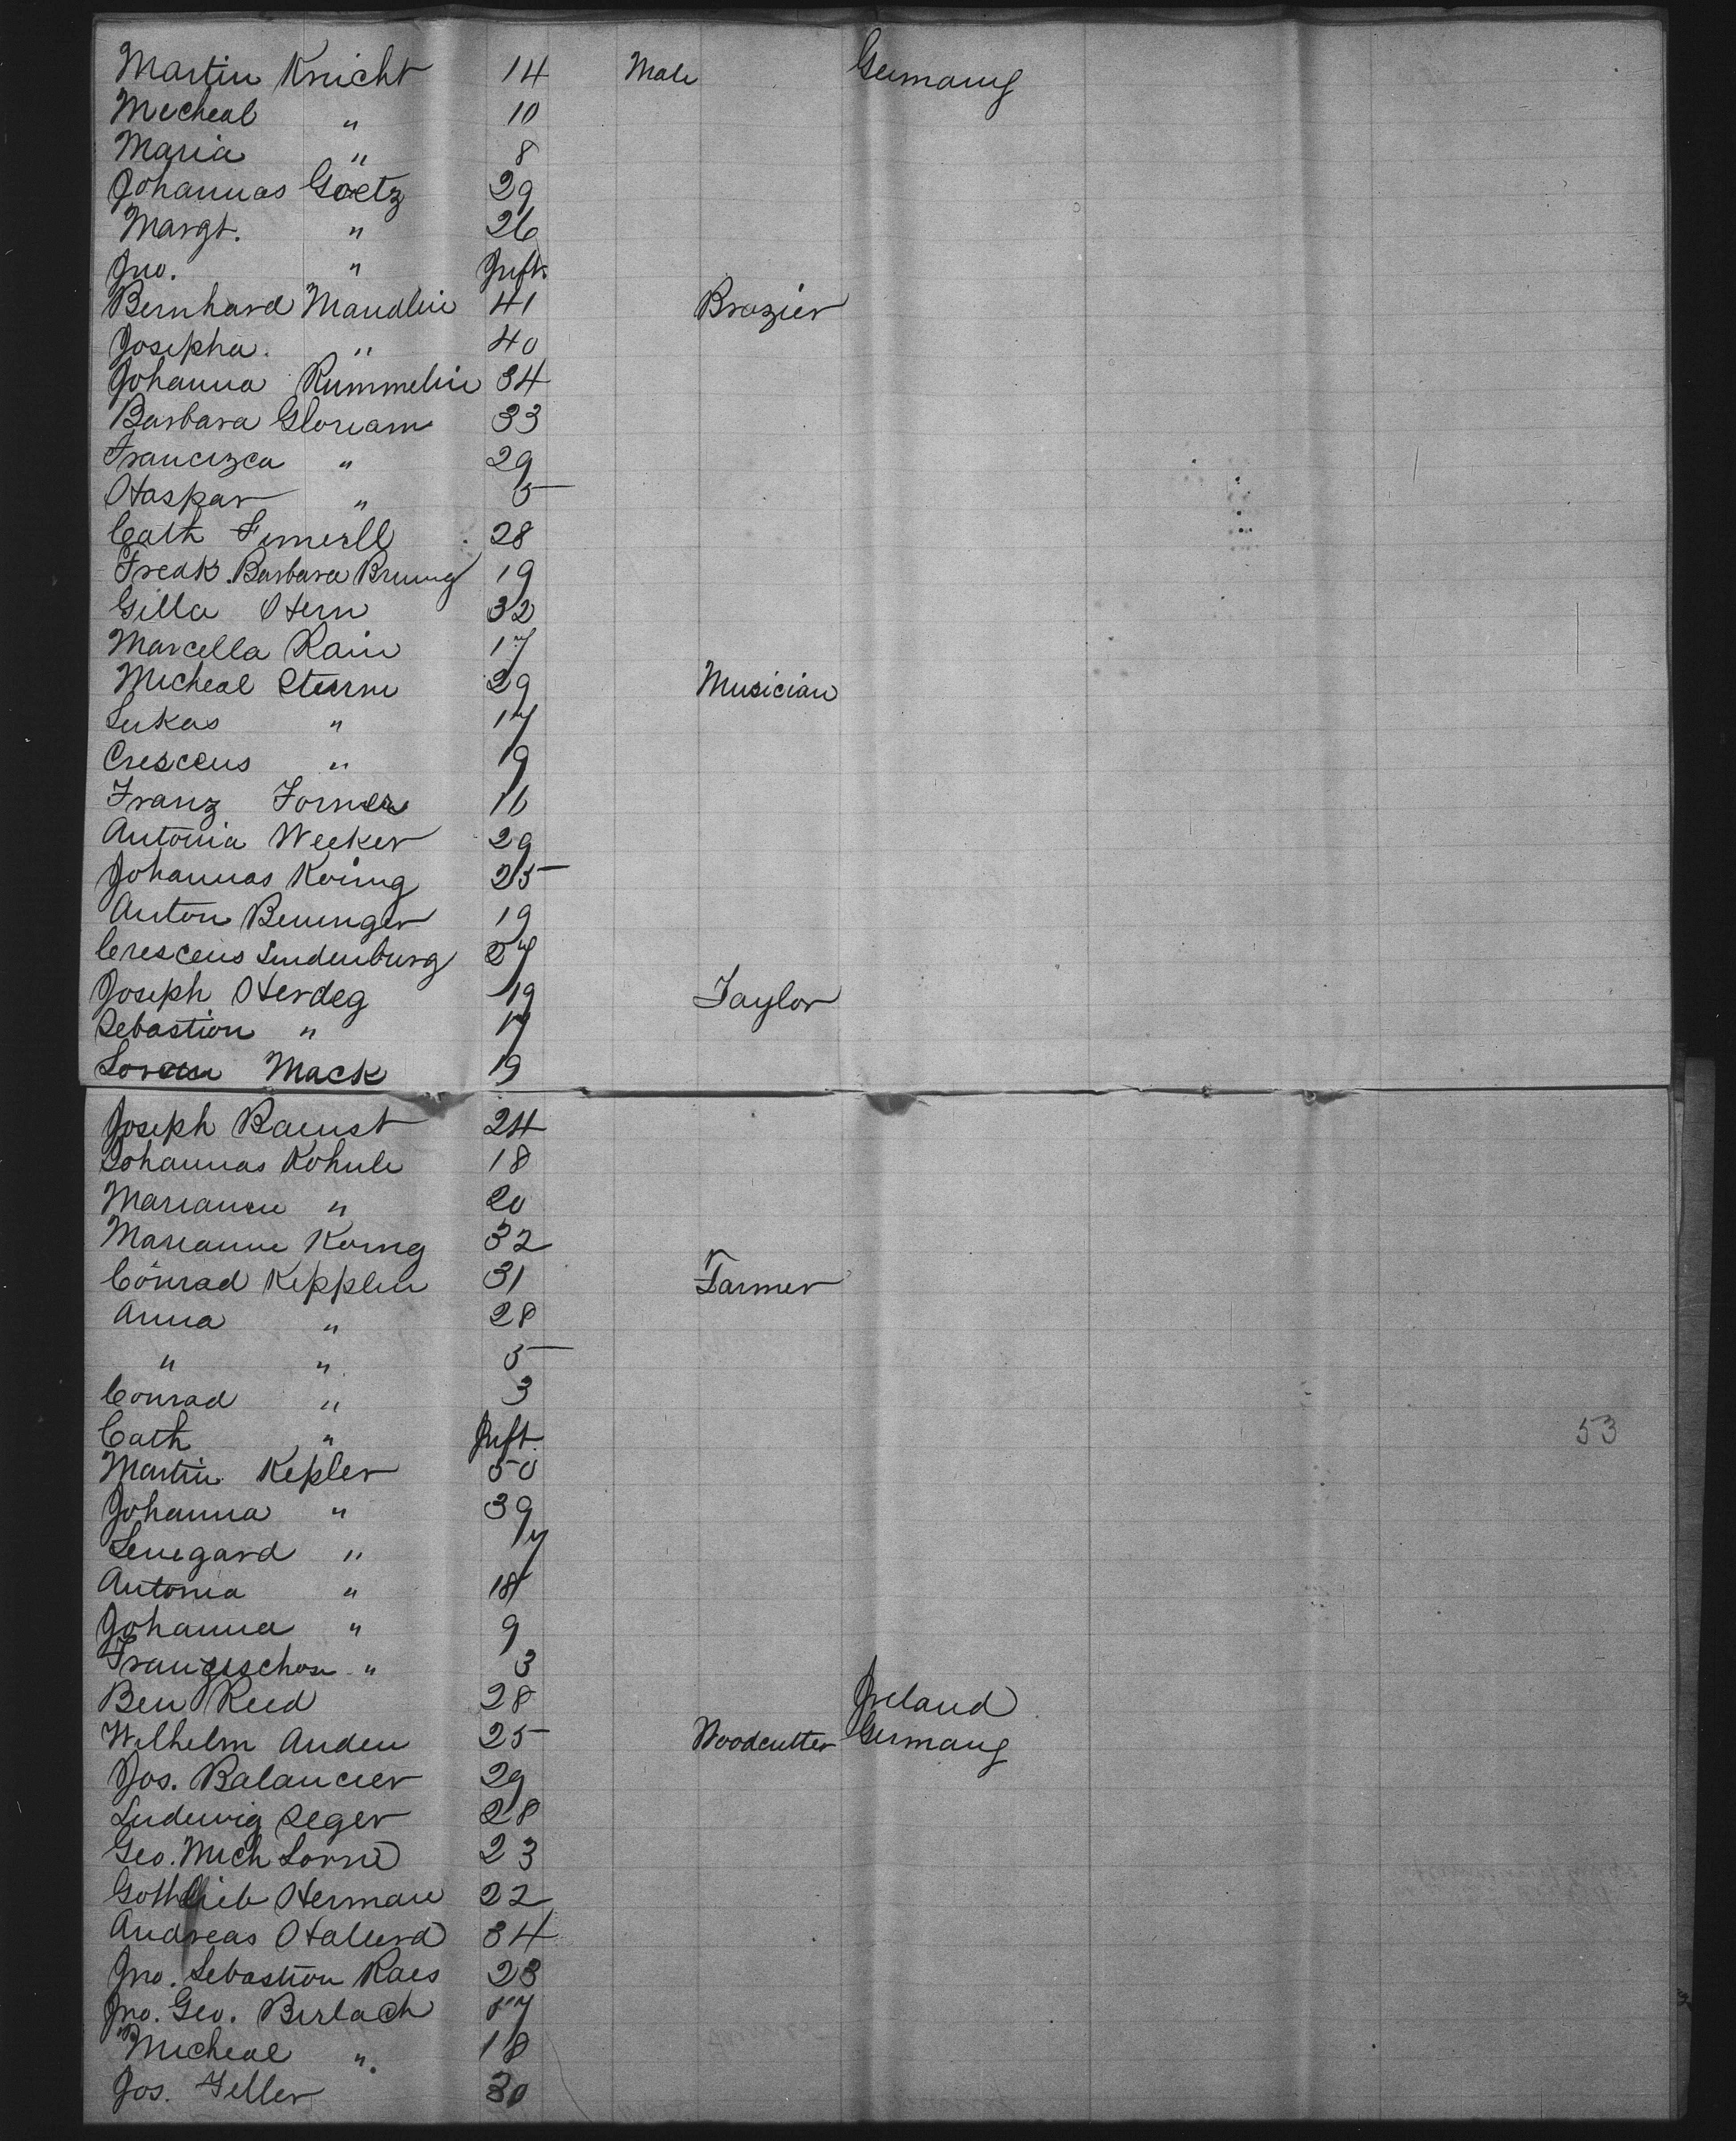 Martin Knicht 14 Male Germany
Micheal " 10
Maria " 8
Johannas Goetz 29
Margt. " 26
Jno. " Inft.
Bernhard Mandlin 41 Brazier
Josepha. " 40
Johanna Rummelin 34
Barbara Gloriam 33
Francizca " 29
Haspar " 5
Cath 28
Fredk. Barbara Bruung 19
Gilla Stern 32
Marcella Rain 17
Micheal Sturm 29 Musician
Lukas " 17
Crescens " 19
Franz Forner 16
Antonia Wecker 29
Johannas Koinig 25
Anton Beninger 19
Crescens Lindenburg 27
Joseph Herdeg 19 Taylor
Sebastion " 17
Mack 19
Joseph Raunst 24
Johannas Kohnle 18
Marianne " 20
Marianne Koinig 32
Conrad Kepplin 31 Farmer
Anna " 28
" " 5
Conrad " 3
Cath " Inft.
Martin Kepler 50
Johanna " 39
Lenegard " 17
Antonia " 18
Johanna " 9
" 3
Ben Reed 28 Ireland
Wilhelm Anden 25 Woodcutter Germany
Jos. Balancier 29
Ludewig Seger 28
Geo. Mich Lorne 23
Gothlieb Herman 22
Andreas 34
Jno. Sebastion Raes 23
Jno. Geo. Berlach 57
Micheal " 18
Jos. Geller 30
53